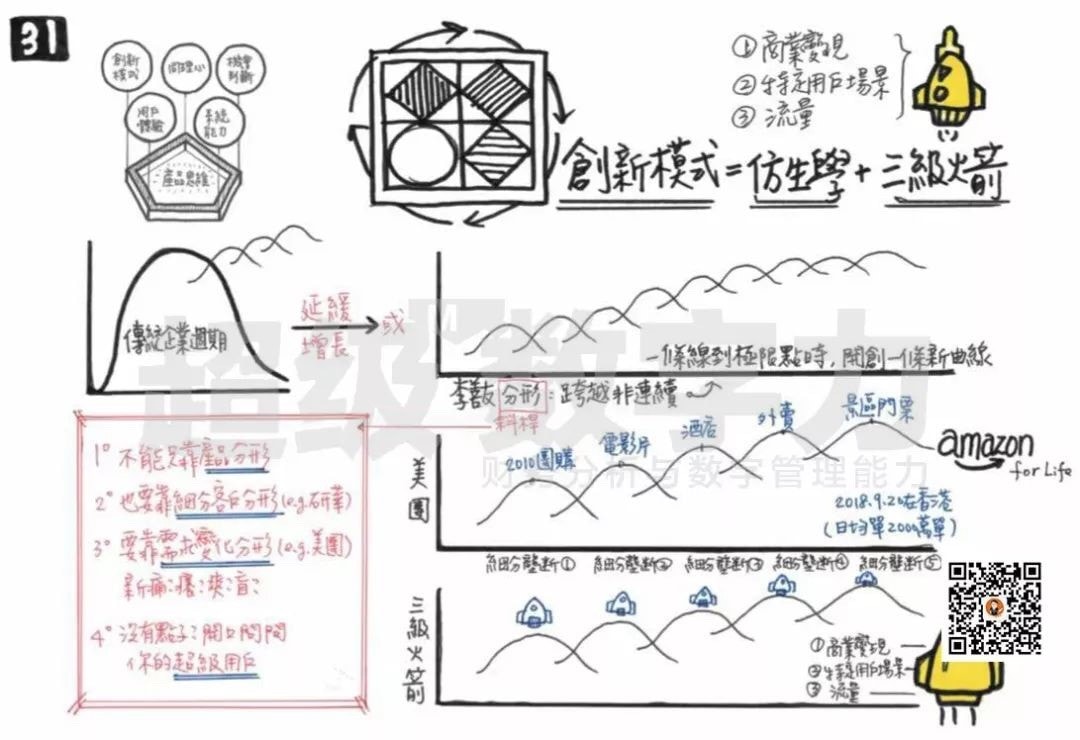 31
創新模式
同理心
機會判斷
用戶體驗
系統能力
產品思維
①商業變現
②特定用戶場景
③流量
創新模式=仿生學+三級火箭
傳統企業週期
延緩
增長
或
一條線到極限點時,開創一條新曲線
李善友 分形:跨越非連續
斜桿
1° 不能只靠產品分形
2° 也要靠細分客戶分形(e.g.研華)
3° 要靠需求變化分形(e.g.美團)
新痛?癢?爽?盲?
4° 沒有點子?開口問問
你的超級用戶
美團
2010團購
電影片
酒店
外賣
景區門票
amazon
for Life
2018.9.20在香港
(日均單2000萬單)
細分壟斷①
細分壟斷②
細分壟斷③
細分壟斷④
細分壟斷⑤
三級火箭
①商業變現
②特定用戶場景
③流量
超级数字力
财务分析与数字管理能力